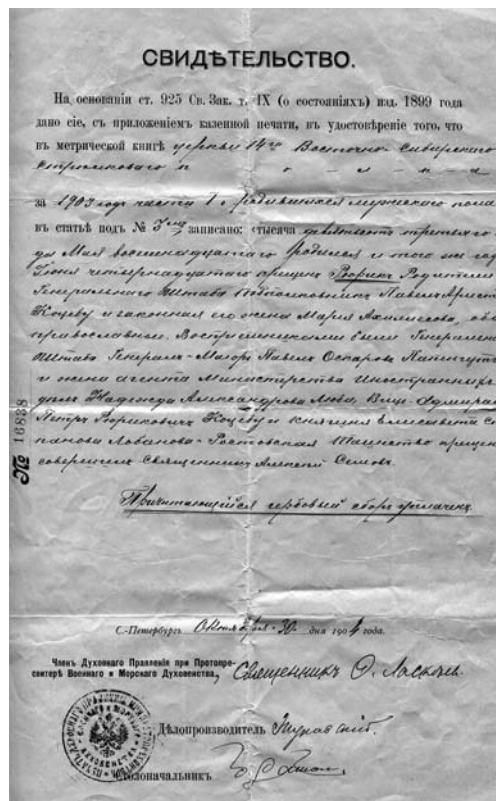 СВИДѢТЕЛЬСТВО.
На основаніи ст. 925 Св. Зак. т. IX (о состояніяхъ) изд. 1899 года
дано сіе, съ приложеніемъ казенной печати, въ удостовѣреніе того, что
въ метрической книгѣ церкви 14го Восточно-Сибирскаго
Стрѣлковаго п о л к а
за 1903 годъ часть I о родившихся мужескаго пола
въ статьѣ подъ № 3 мъ записано: тысяча девятьсотъ третьяго го
да Мая восемнадцатаго родился и того же год
Іюня четырнадцатаго крещенъ Рюрикъ Родители
Генеральнаго Штаба Подполковникъ Павелъ
Коцебу и законная его жена Марія Ахиллесова, оба
православные. Воспріемниками были Генеральн
Штаба Генералъ-Маіоръ Павелъ Оскаровъ
и жена агента Министерства Иностранныхъ
дѣлъ Надежда Александрова Вице-Адмирал
Петръ Рюриковичъ Коцебу и княгиня Елисавета Сте
панова Лобанова-Ростовская Таинство крещен
совершилъ Священникъ Алексѣй
№ 16838
Причитающійся гербовый сборъ уплаченъ.
С.-Петербургъ. Октября 30 дня 1904 года.
Членъ Духовнаго Правленія при Протопре-
свитерѣ Военнаго и Морскаго Духовенства, Священникъ
Дѣлопроизводитель
Столоначальникъ